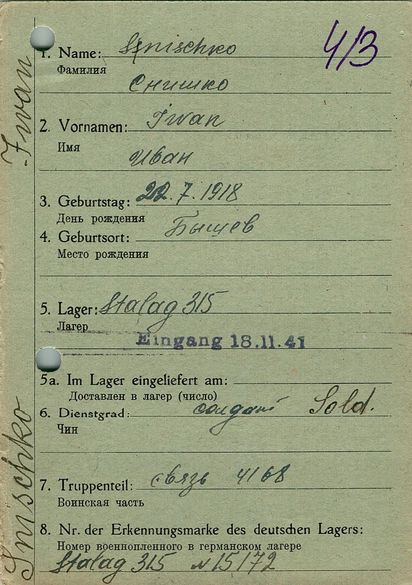 4/3
1. Name: Snischko
Фамилия
Снишко
2. Vornamen: Iwan
Имя
Иван
3. Geburtstag: 22.7.1918
День рождения
4. Geburtsort: Бышев
Место рождения
5. Lager: Stalag 315
Лагер
Eingang 18.11.41
5a. Im Lager eingeliefert am:
Доставлен в лагер (число)
6. Dienstgrad: солдат Sold.
Чин
7. Truppenteil: связь 4168
Воинская часть
8. Nr. der Erkennungsmarke des deutschen Lagers:
Номер военнопленного в германском лагере
Stalag 315 N 15172
Snischko Iwan